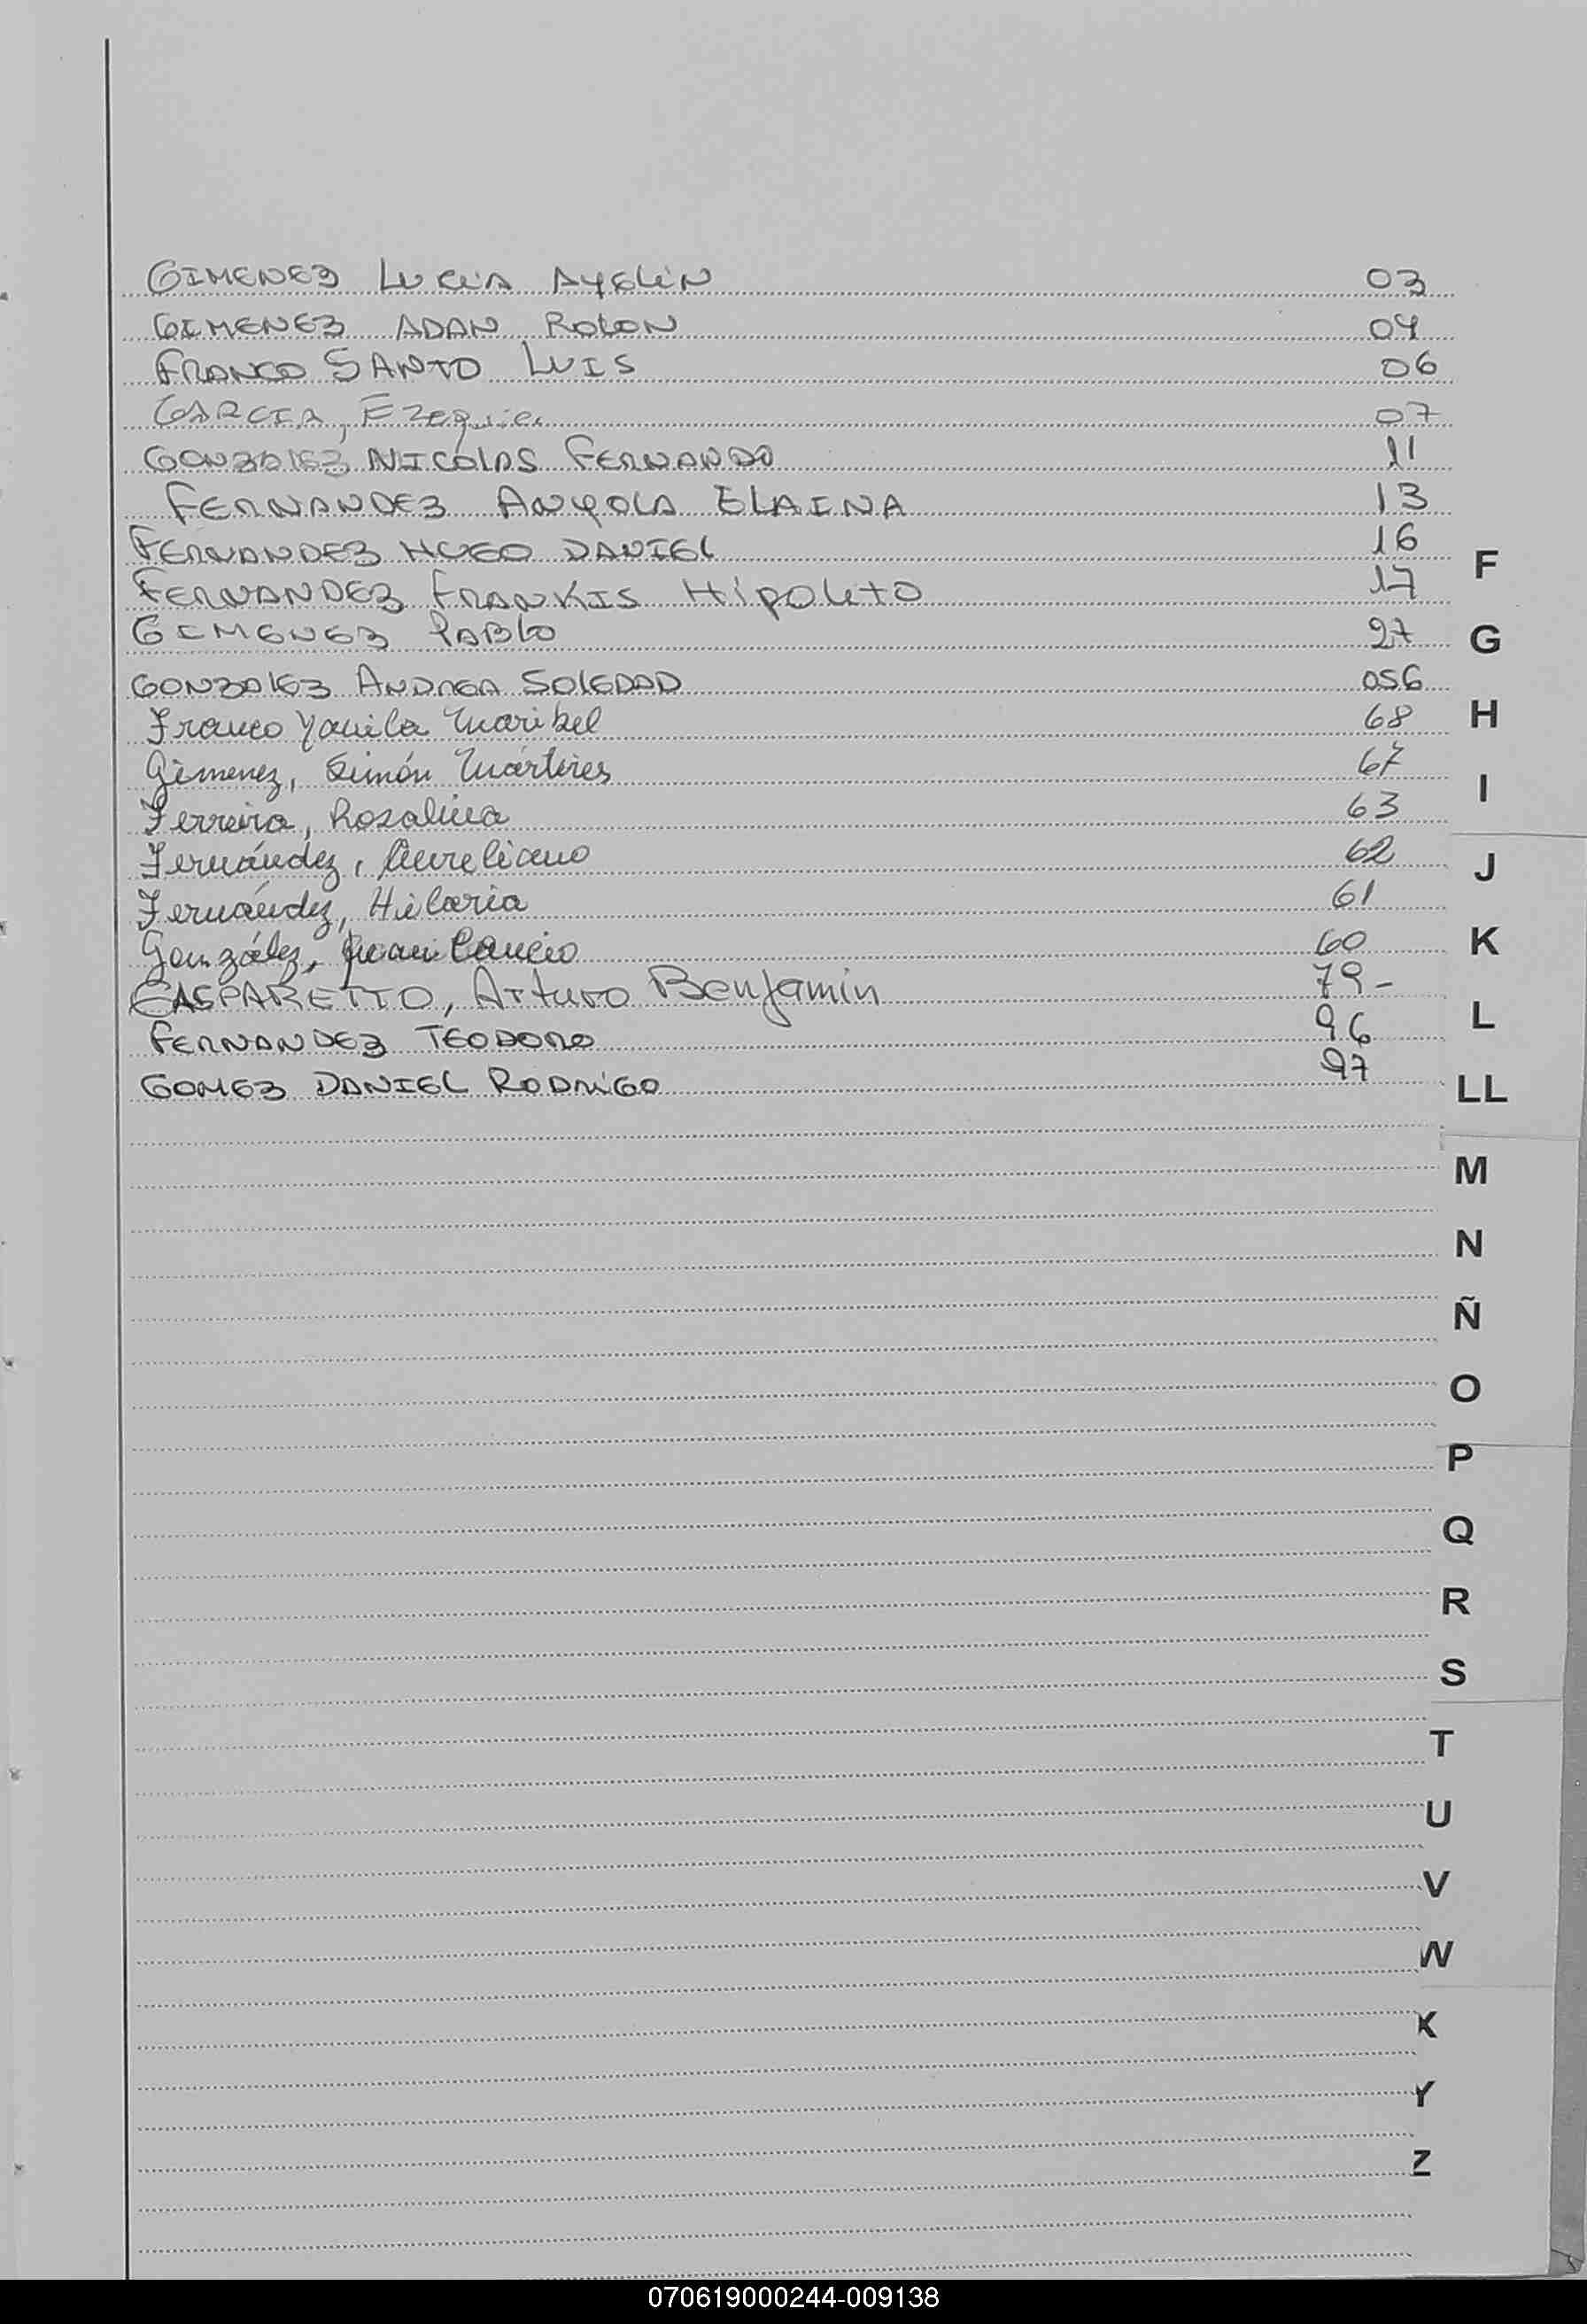 GIMENEZ LUCIA AYELIN 03
GIMENEZ ADAN ROLON 04
FRANCO SANTO LUIS 06
GARCIA, Ezequiel 07
GONZALEZ NICOLAS FERNANDO 11
FERNANDEZ ANYOLA ELAINA 13
FERNANDEZ HUGO DANIEL 16
F
FERNANDEZ FRANKIS HIPOLITO 17
GIMENEZ PABLO 27
G
GONZALEZ ANDREA SOLEDAD 056
Franco Yanila Maribel 68
H
Gimenez, Simón Mártires 67
I
Ferreira, Rosalina 63
Fernández, Aureliano 62
J
Fernández, Hilaria 61
González, Juan Cancio 60
K
GASPARETTO, Arturo Benjamin 79-
L
FERNANDEZ TEODORO 96
GOMEZ DANIEL RODRIGO 97
LL
M
N
Ñ
O
P
Q
R
S
T
U
V
W
X
Y
Z
070619000244-009138